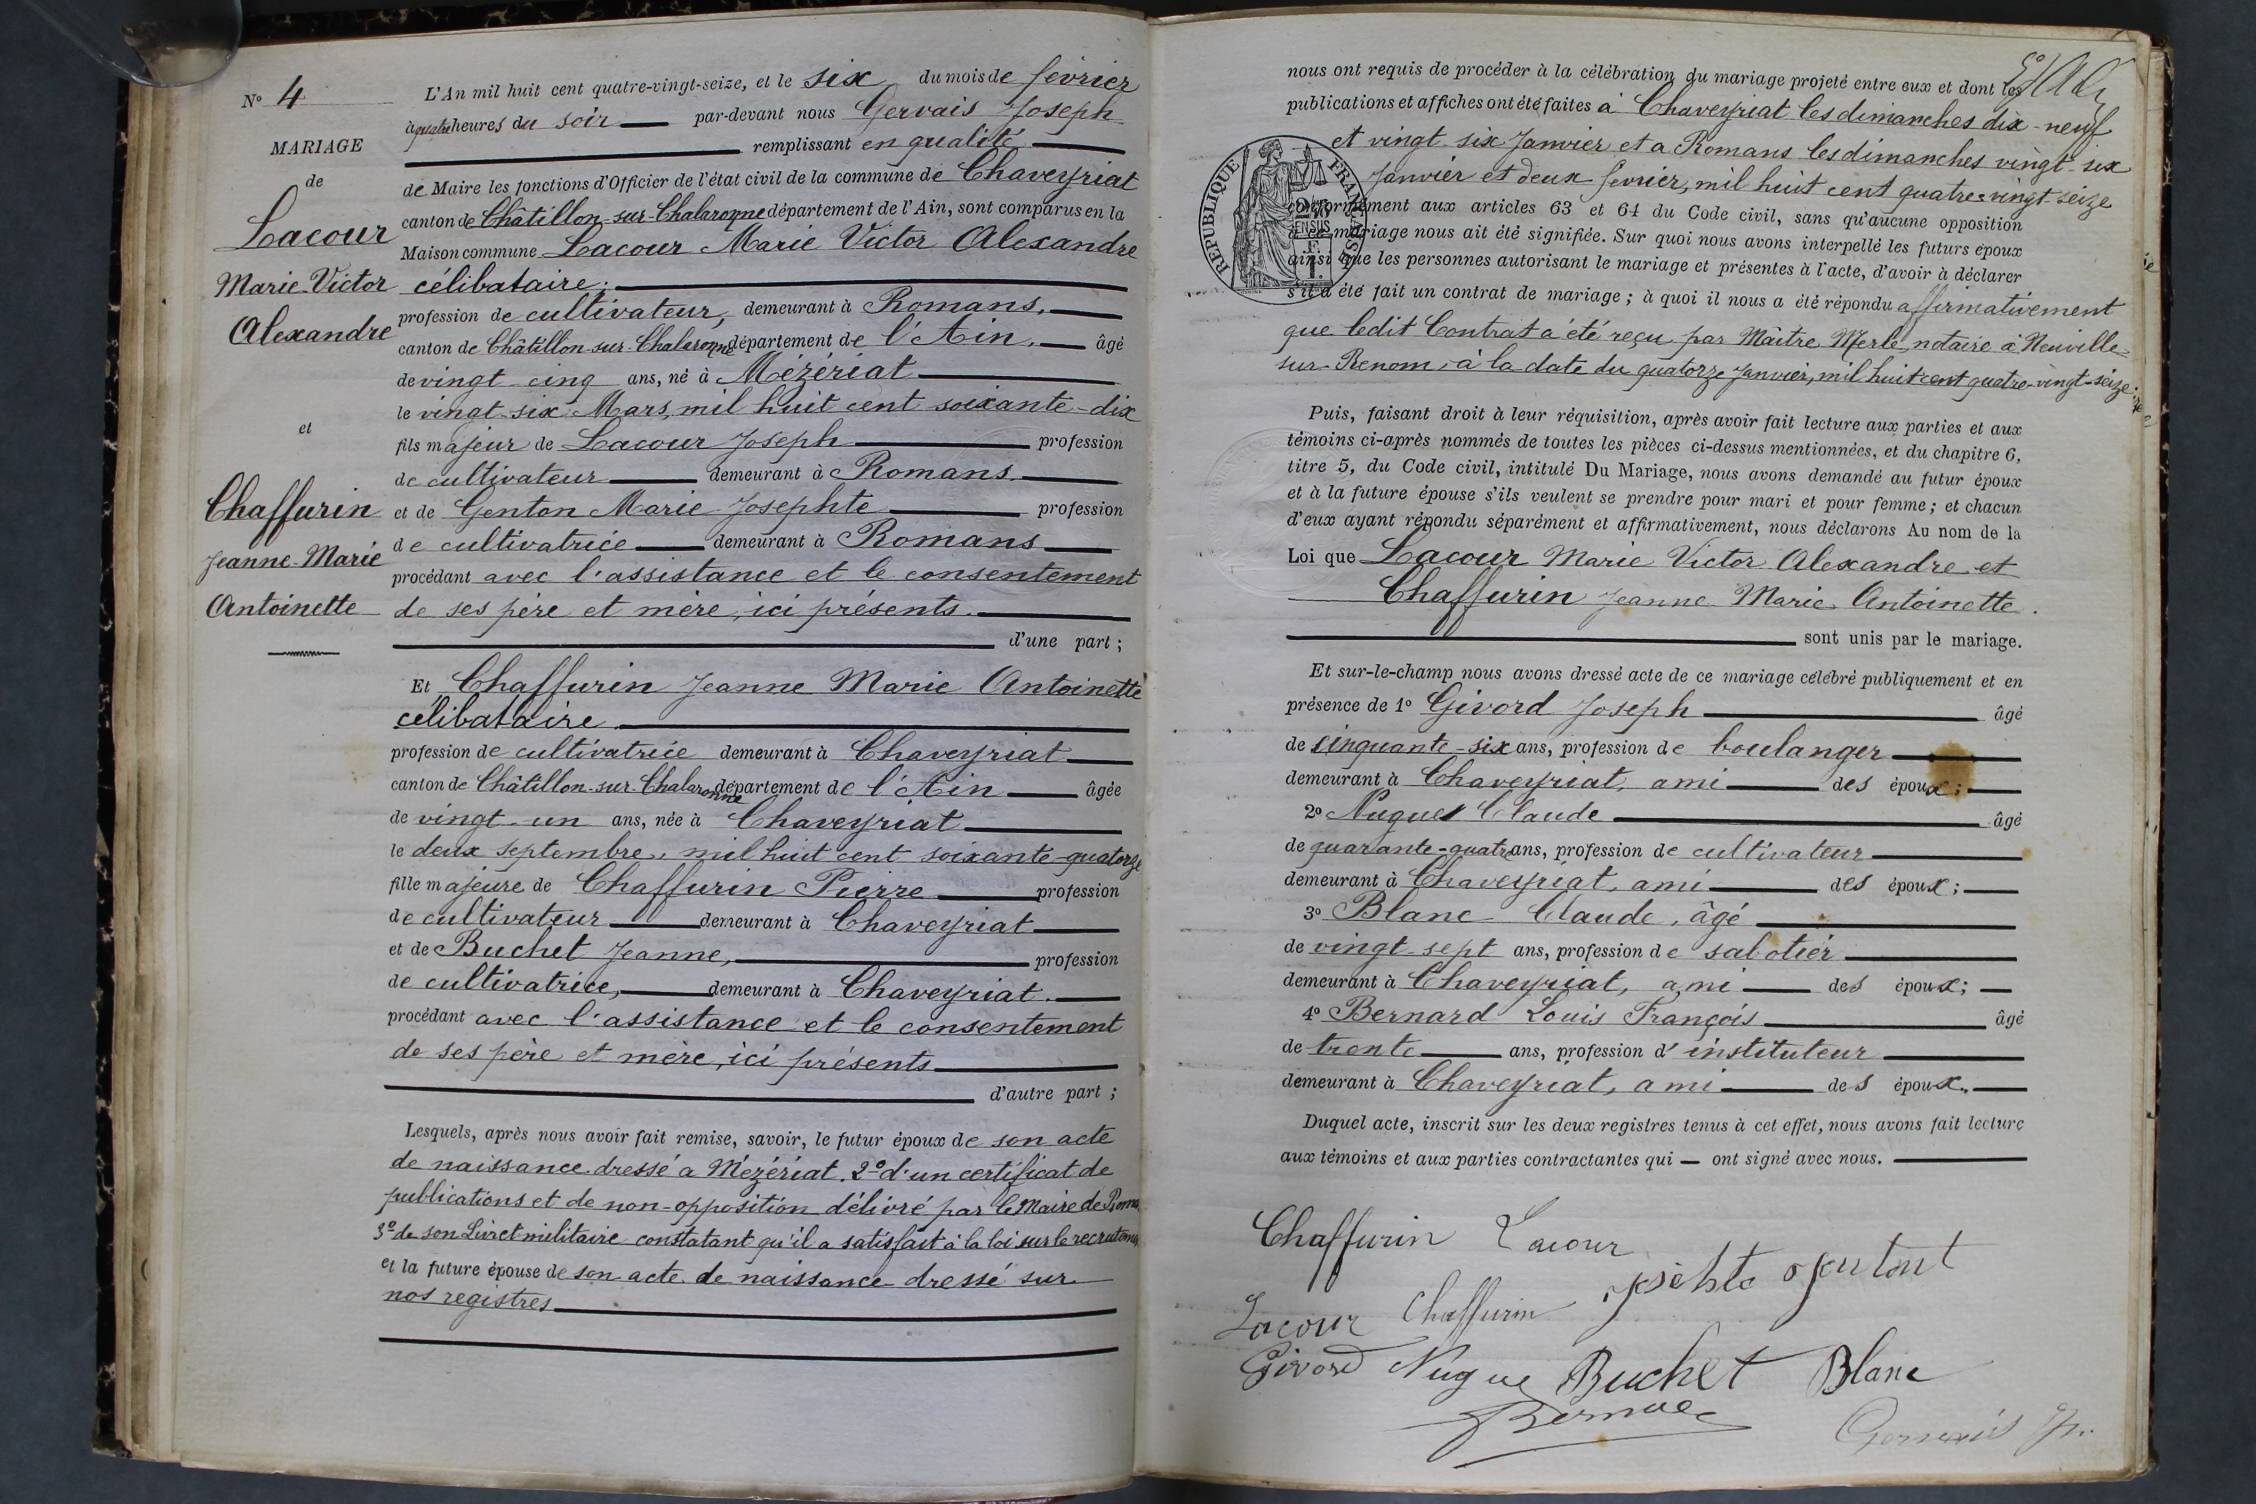 N° 4
MARIAGE
de
Lacour
Marie-Victor
Alexandre
et
Chaffurin
Jeanne-Marie
Antoinette
L'An mil huit cent quatre-vingt-seize, et le six du mois de février
à quatre heures du soir par-devant nous Gervais Joseph
remplissant en qualité
de Maire les fonctions d'Officier de l'état civil de la commune de Chaveyriat
canton de Châtillon-sur-Chalaronne département de l'Ain, sont comparus en la
Maison commune Lacour Marie Victor Alexandre
célibataire;
profession de cultivateur, demeurant à Romans,
canton de Châtillon-sur-Chalaronne département de l'Ain, âgé
de vingt-cinq ans, né à Mézériat
le vingt-six Mars, mil huit cent soixante-dix
fils majeur de Lacour Joseph profession
de cultivateur demeurant à Romans.
et de Genton Marie-Josephte profession
de cultivatrice demeurant à Romans
procédant avec l'assistance et le consentement
de ses père et mère, ici présents.
d'une part ;
Et Chaffurin Jeanne Marie Antoinette
célibataire
profession de cultivatrice demeurant à Chaveyriat
canton de Châtillon-sur-Chalaronne département de l'Ain âgée
de vingt-un ans, née à Chaveyriat
le deux septembre, mil huit cent soixante-quatorze
fille majeure de Chaffurin Pierre profession
de cultivateur demeurant à Chaveyriat
et de Buchet Jeanne, profession
de cultivatrice, demeurant à Chaveyriat.
procédant avec l'assistance et le consentement
de ses père et mère, ici présents
d'autre part ;
Lesquels, après nous avoir fait remise, savoir, le futur époux de son acte
de naissance dressé a Mézériat. 2° d'un certificat de
publications et de non-opposition délivré par le Maire de Romans
3° de son Livret militaire constatant qu'il a satisfait à la loi sur le recrutement
et la future épouse de son acte de naissance dressé sur
nos registres
nous ont requis de procéder à la célébration du mariage projeté entre eux et dont les
publications et affiches ont été faites à Chaveyriat les dimanches dix-neuf
et vingt-six Janvier et a Romans les dimanches vingt-six
Janvier et deux fevrier, mil huit cent quatre-vingt-seize
RÉPUBLIQUE FRANÇAISE
conformément aux articles 63 et 64 du Code civil, sans qu'aucune opposition
à ce mariage nous ait été signifiée. Sur quoi nous avons interpellé les futurs époux
ainsi que les personnes autorisant le mariage et présentes à l'acte, d'avoir à déclarer
s'il a été fait un contrat de mariage ; à quoi il nous a été répondu affirmativement
que ledit Contrat a été reçu par Maître Merle, notaire à Neuville-
sur-Renom, à la date du quatorze Janvier, mil huit cent quatre-vingt-seize.
Puis, faisant droit à leur réquisition, après avoir fait lecture aux parties et aux
témoins ci-après nommés de toutes les pièces ci-dessus mentionnées, et du chapitre 6,
titre 5, du Code civil, intitulé Du Mariage, nous avons demandé au futur époux
et à la future épouse s'ils veulent se prendre pour mari et pour femme ; et chacun
d'eux ayant répondu séparément et affirmativement, nous déclarons Au nom de la
Loi que Lacour Marie Victor Alexandre et
Chaffurin Jeanne Marie Antoinette.
sont unis par le mariage.
Et sur-le-champ nous avons dressé acte de ce mariage célébré publiquement et en
présence de 1° Givord Joseph âgé
de cinquante-six ans, profession de boulanger
demeurant à Chaveyriat, ami des époux ;
2° Nugue Claude âgé
de quarante-quatre ans, profession de cultivateur
demeurant à Chaveyriat, ami des époux ;
3° Blanc Claude, âgé
de vingt-sept ans, profession de sabotier
demeurant à Chaveyriat, ami des époux ;
4° Bernard Louis François âgé
de trente ans, profession d'instituteur
demeurant à Chaveyriat, ami des époux.
Duquel acte, inscrit sur les deux registres tenus à cet effet, nous avons fait lecture
aux témoins et aux parties contractantes qui — ont signé avec nous.
Chaffurin Lacour
Lacour Chaffurin
Givord Nugue Buchet Blanc
Gervais Jh.